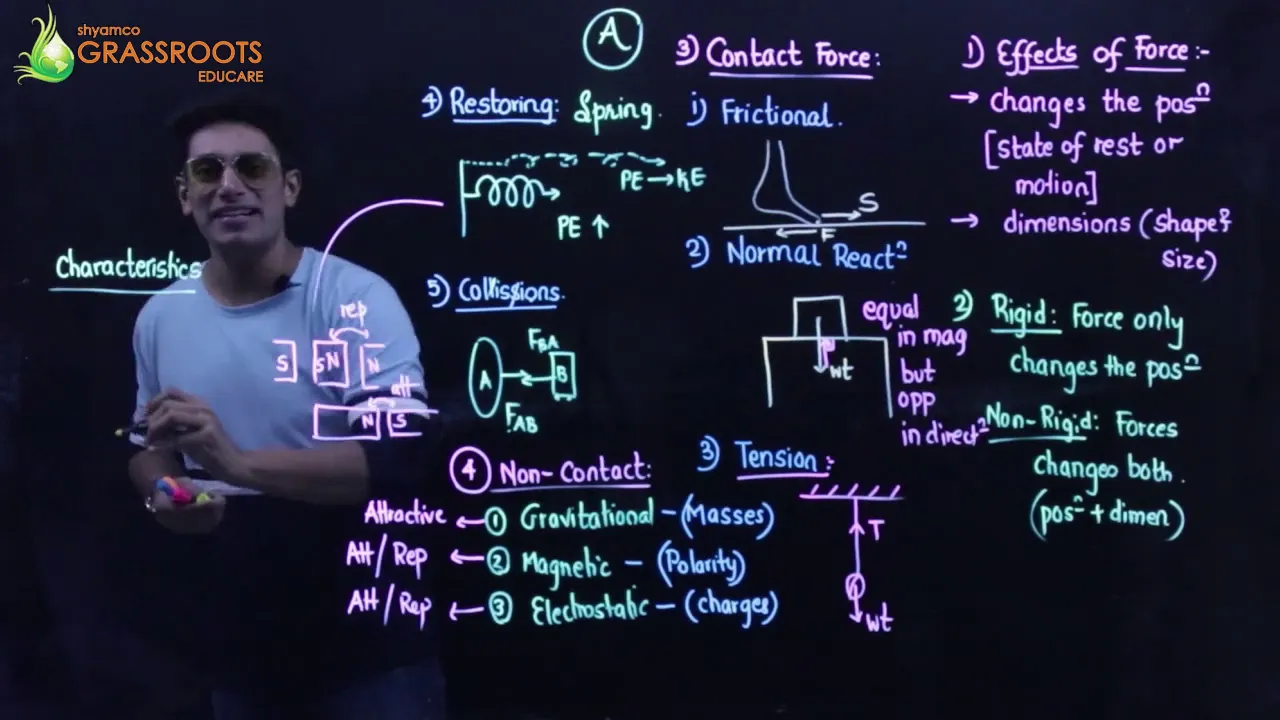 shyamco
GRASSROOTS
EDUCARE
A
1) Effects of Force :-
→ changes the posⁿ
[state of rest or
motion]
→ dimensions (shape &
size)
2) Rigid: Force only
changes the posⁿ
Non-Rigid: Forces
changes both.
(posⁿ + dimen)
3) Contact Force:
i) Frictional.
S
F
2) Normal Reactⁿ
wt
equal
in mag
but
opp
in directⁿ
3) Tension :
T
wt
4) Restoring: Spring.
PE → KE
PE ↑
5) Collissions.
F_BA
A
B
F_AB
4 Non-Contact:
Attractive ← 1 Gravitational – (Masses)
Att/Rep ← 2 Magnetic – (Polarity)
Att/Rep ← 3 Electrostatic – (charges)
Characteristics
rep
S SN N
att
N S